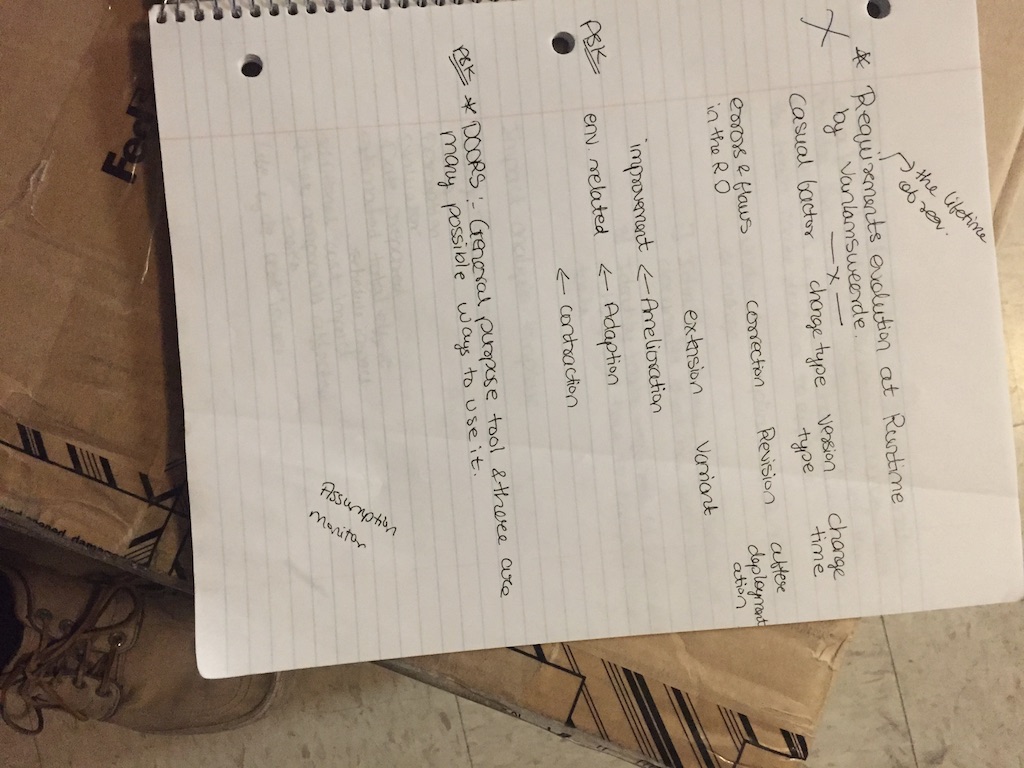 the lifetime
of
* Requirements evolution at Runtime
by Vanlansweerde.
— x —
Casual factor change type version type change time
errors & flaws in the RD correction Revision after deployment
ation
extension Variant
improvement ← Amelioration
env related ← Adaption
← contraction
* DOORS :- General purpose tool & there are
many possible ways to use it.
Assumption
monitor